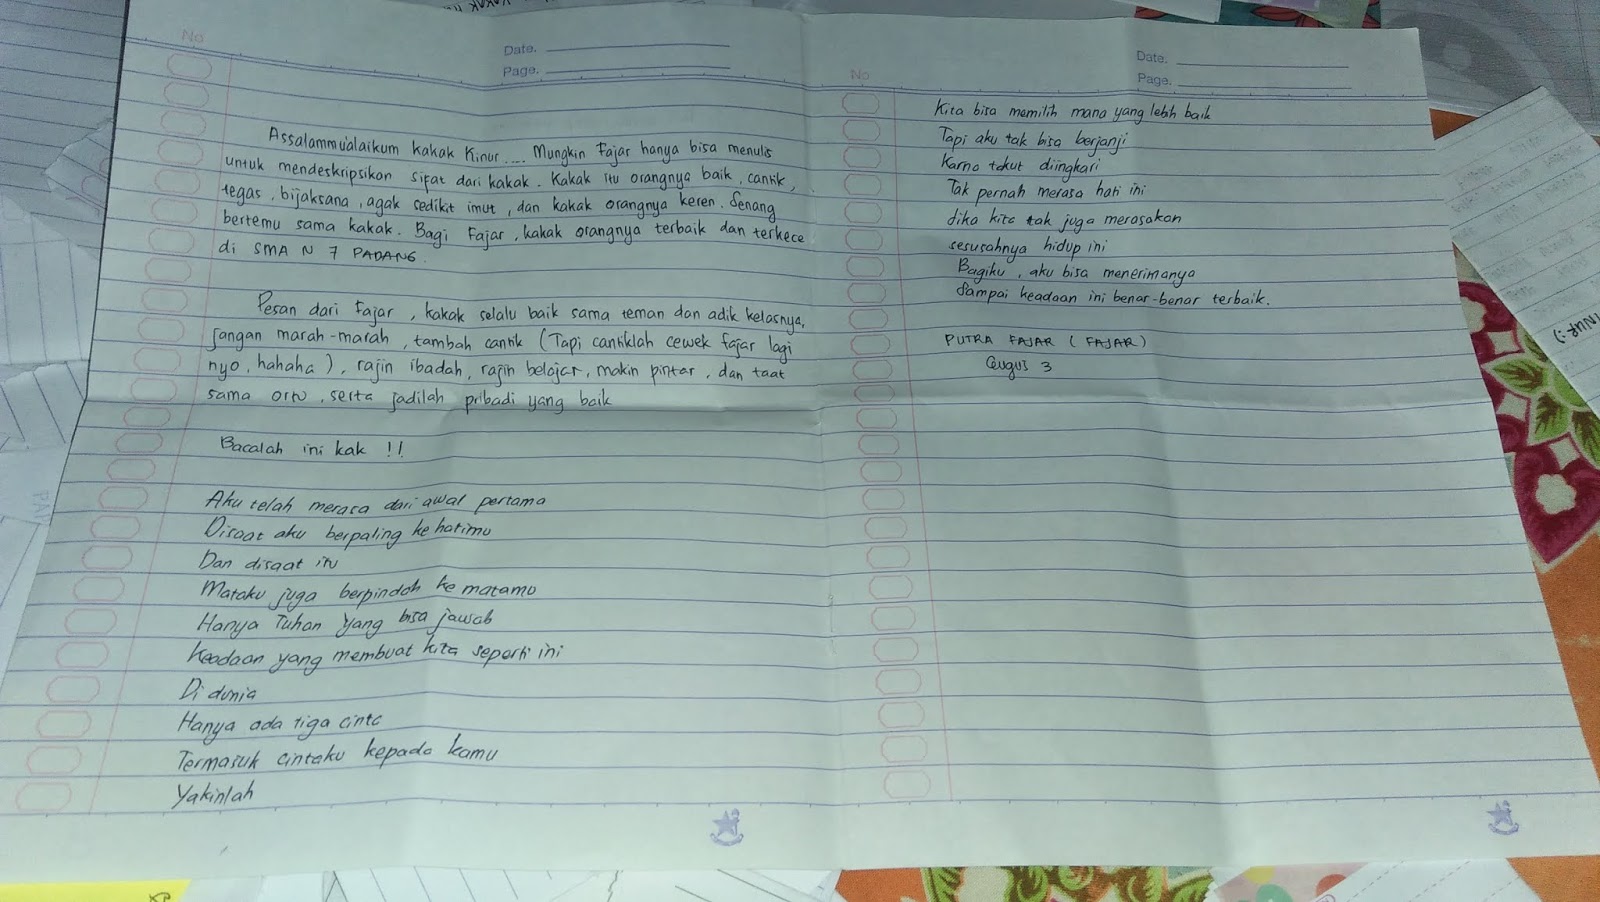 No
Date.
Page.
Assalammu'alaikum kakak Kinur .... Mungkin Fajar hanya bisa menulis
untuk mendeskripsikan sifat dari kakak. Kakak itu orangnya baik, cantik,
tegas, bijaksana, agak sedikit imut, dan kakak orangnya keren. Senang
bertemu sama kakak. Bagi Fajar, kakak orangnya terbaik dan terkece
di SMA N 7 PADANG.
Pesan dari Fajar, kakak selalu baik sama teman dan adik kelasnya,
jangan marah-marah, tambah cantik (Tapi cantiklah cewek fajar lagi
nyo, hahaha), rajin ibadah, rajin belajar, makin pintar, dan taat
sama ortu, serta jadilah pribadi yang baik
Bacalah ini kak !!
Aku telah merasa dari awal pertama
Disaat aku berpaling ke hatimu
Dan disaat itu
Mataku juga berpindah ke matamu
Hanya Tuhan yang bisa jawab
Keadaan yang membuat kita seperti ini
Di dunia
Hanya ada tiga cinta
Termasuk cintaku kepada kamu
Yakinlah
No
Date.
Page.
Kita bisa memilih mana yang lebih baik
Tapi aku tak bisa berjanji
Karna takut diingkari
Tak pernah merasa hati ini
Jika kita tak juga merasakan
sesusahnya hidup ini
Bagiku, aku bisa menerimanya
Sampai keadaan ini benar-benar terbaik.
PUTRA FAJAR (FAJAR)
Gugus 3
INUR :)